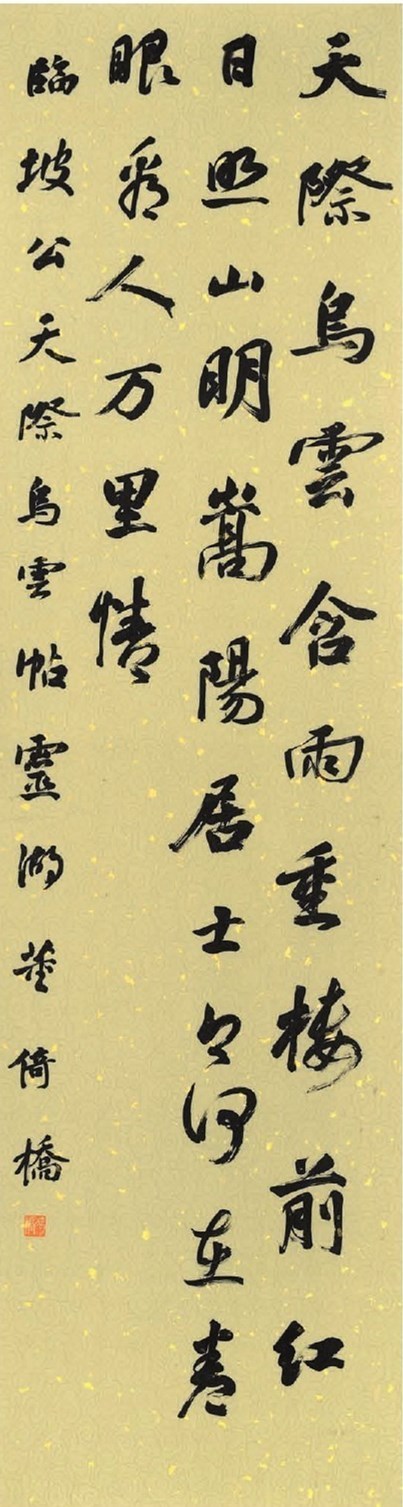 天際烏雲含雨重樓前紅
日照山明嵩陽居士今何在青
眼看人万里情
臨坡公天際烏雲帖靈湖倚橋